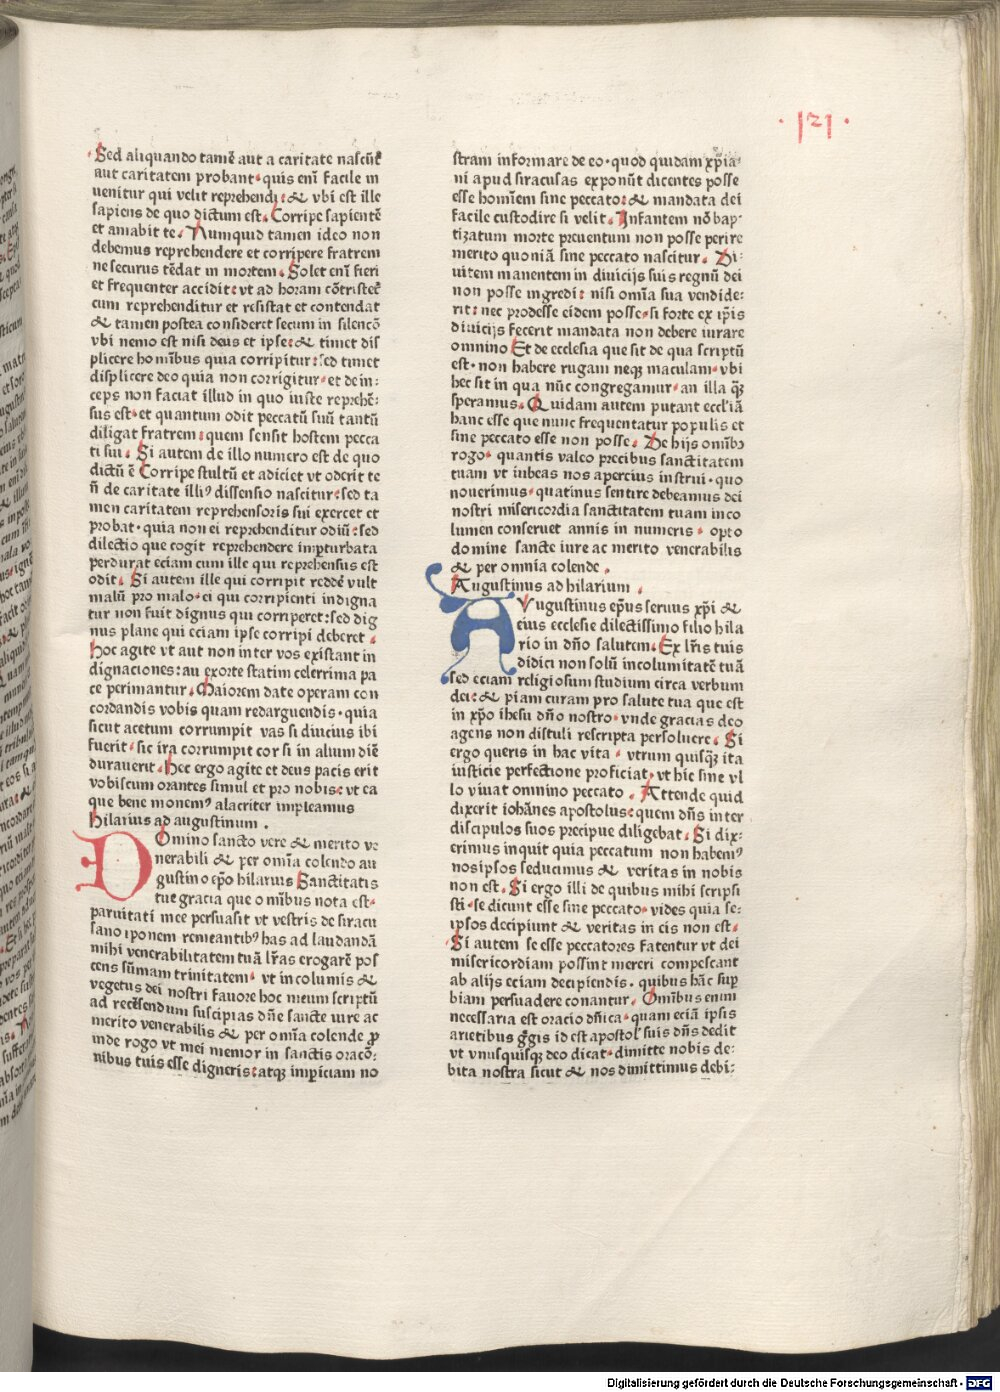 · 121 ·
Sed aliquando tamē aut a caritate nascūt̄
aut caritatem probant·quis enī facile in
uenitur qui velit reprehendi:& vbi est ille
sapiens de quo dictum est·Corripe sapientē
et amabit te·Numquid tamen ideo non
debemus reprehendere et corripere fratrem
ne securus tēdat in mortem·Solet enī fieri
et frequenter accidit:vt ad horam cōtristet̄
cum reprehenditur et resistat et contendat
& tamen postea consideret secum in silencō
vbi nemo est nisi deus et ipse:& timet dis
plicere homībus quia corripitur:sed timet
displicere deo quia non corrigitur·et dein:
ceps non faciat illud in quo iuste reprehē:
sus est·et quantum odit peccatū suū tantū
diligat fratrem:quem sensit hostem pecca
ti sui·Si autem de illo numero est de quo
dictū ē Corripe stultū et adiciet vt oderit te
n̄ de caritate illi⁹ dissensio nascitur:sed ta
men caritatem reprehensoris sui exercet et
probat·quia non ei reprehenditur odiū:sed
dilectio que cogit reprehendere imp̄turbata
perdurat eciam cum ille qui reprehensus est
odit·Si autem ille qui corripit reddē vult
malū pro malo·ei qui corripienti indigna
tur non fuit dignus qui corriperet:sed dig
nus plane qui eciam ipse corripi deberet·
hoc agite vt aut non inter vos existant in
dignaciones:au exorte statim celerrima pa
ce perimantur·Maiorem date operam con
cordandis vobis quam redarguendis·quia
sicut acetum corrumpit vas si diucius ibi
fuerit·sic ira corrumpit cor si in alium diē
durauerit·hec ergo agite et deus pacis erit
vobiscum orantes simul et pro nobis:vt ea
que bene monem⁹ alacriter impleamus
hilarius ad augustinum .
DOmino sancto vere & merito ve
nerabili & per omīa colendo au
gustino ep̄o hilarius Sanctitatis
tue gracia que omībus nota est·
paruitati mee persuasit vt vestris de siracu
sano iponem remeantib⁹ has ad laudandā
mihi venerabilitatem tuā lr̄as erogarē pos
cens sūmam trinitatem·vt incolumis &
vegetus dei nostri fauore hoc meum scriptū
ad recēsendum suscipias dn̄e sancte iure ac
merito venerabilis & per omīa colende p̲
inde rogo vt mei memor in sanctis oracō:
nibus tuis esse digneris:atq̲ imp̄iciam no
stram informare de eo·quod quidam xp̄ia:
ni apud siracusas exponūt dicentes posse
esse homīem sine peccato:& mandata dei
facile custodire si velit·Infantem nō bap:
tizatum morte preuentum non posse perire
merito quoniā sine peccato nascitur·Di:
uitem manentem in diuicijs suis regnū dei
non posse ingredi: nisi omīa sua vendide:
rit:nec prodesse eidem posse·si forte ex ip̄is
diuicijs fecerit mandata non debere iurare
omnino Et de ecclesia que sit de qua scriptū
est·non habere rugam neq̲ maculam·vbi
hec sit in qua nūc congregamur·an illa q̄ȝ
speramus·Quidam autem putant eccl'iā
hanc esse que nunc frequentatur populis et
sine peccato esse non posse·De hijs omībȝ
rogo·quantis valeo precibus sanctitatem
tuam vt iubeas nos apercius instrui·quo
nouerimus·quatinus sentire debeamus dei
nostri misericordia sanctitatem tuam inco
lumen conseruet annis in numeris·opto
domine sancte iure ac merito venerabilis
& per omnia colende .
Augustinus ad hilarium .
AVugustinus ep̄us seruus xp̄i &
eius ecclesie dilectissimo filio hila
rio in dn̄o salutem·Ex lr̄is tuis
didici non solū incolumitatē tuā
sed eciam religiosum studium circa verbum
dei:& piam curam pro salute tua que est
in xp̄o ihesu dn̄o nostro·vnde gracias deo
agens non distuli rescripta persoluere·Si
ergo queris in hac vita·vtrum quisq̄ȝ ita
iusticie perfectione proficiat·vt hic sine vl
lo viuat omnino peccato·Attende quid
dixerit iohānes apostolus:quem dn̄s inter
discipulos suos precipue diligebat·Si dix:
erimus inquit quia peccatum non habem⁹
nosipsos seducimus & veritas in nobis
non est·Si ergo illi de quibus mihi scripsi
sti·se dicunt esse sine peccato·vides quia se:
ipsos decipiunt & veritas in eis non est·
Si autem se esse peccatores fatentur vt dei
misericordiam possint mereri compescant
ab alijs eciam decipiendis·quibus hāc sup̄
biam persuadere conantur·Omībus enim
necessaria est oracio dn̄ica·quam eciā ipsis
arietibus gr̄gis id est apostol' suis dn̄s dedit
vt vnusquisq̲ deo dicat·dimitte nobis de:
bita nostra sicut & nos dimittimus debi:
Digitalisierung gefördert durch die Deutsche Forschungsgemeinschaft - DFG